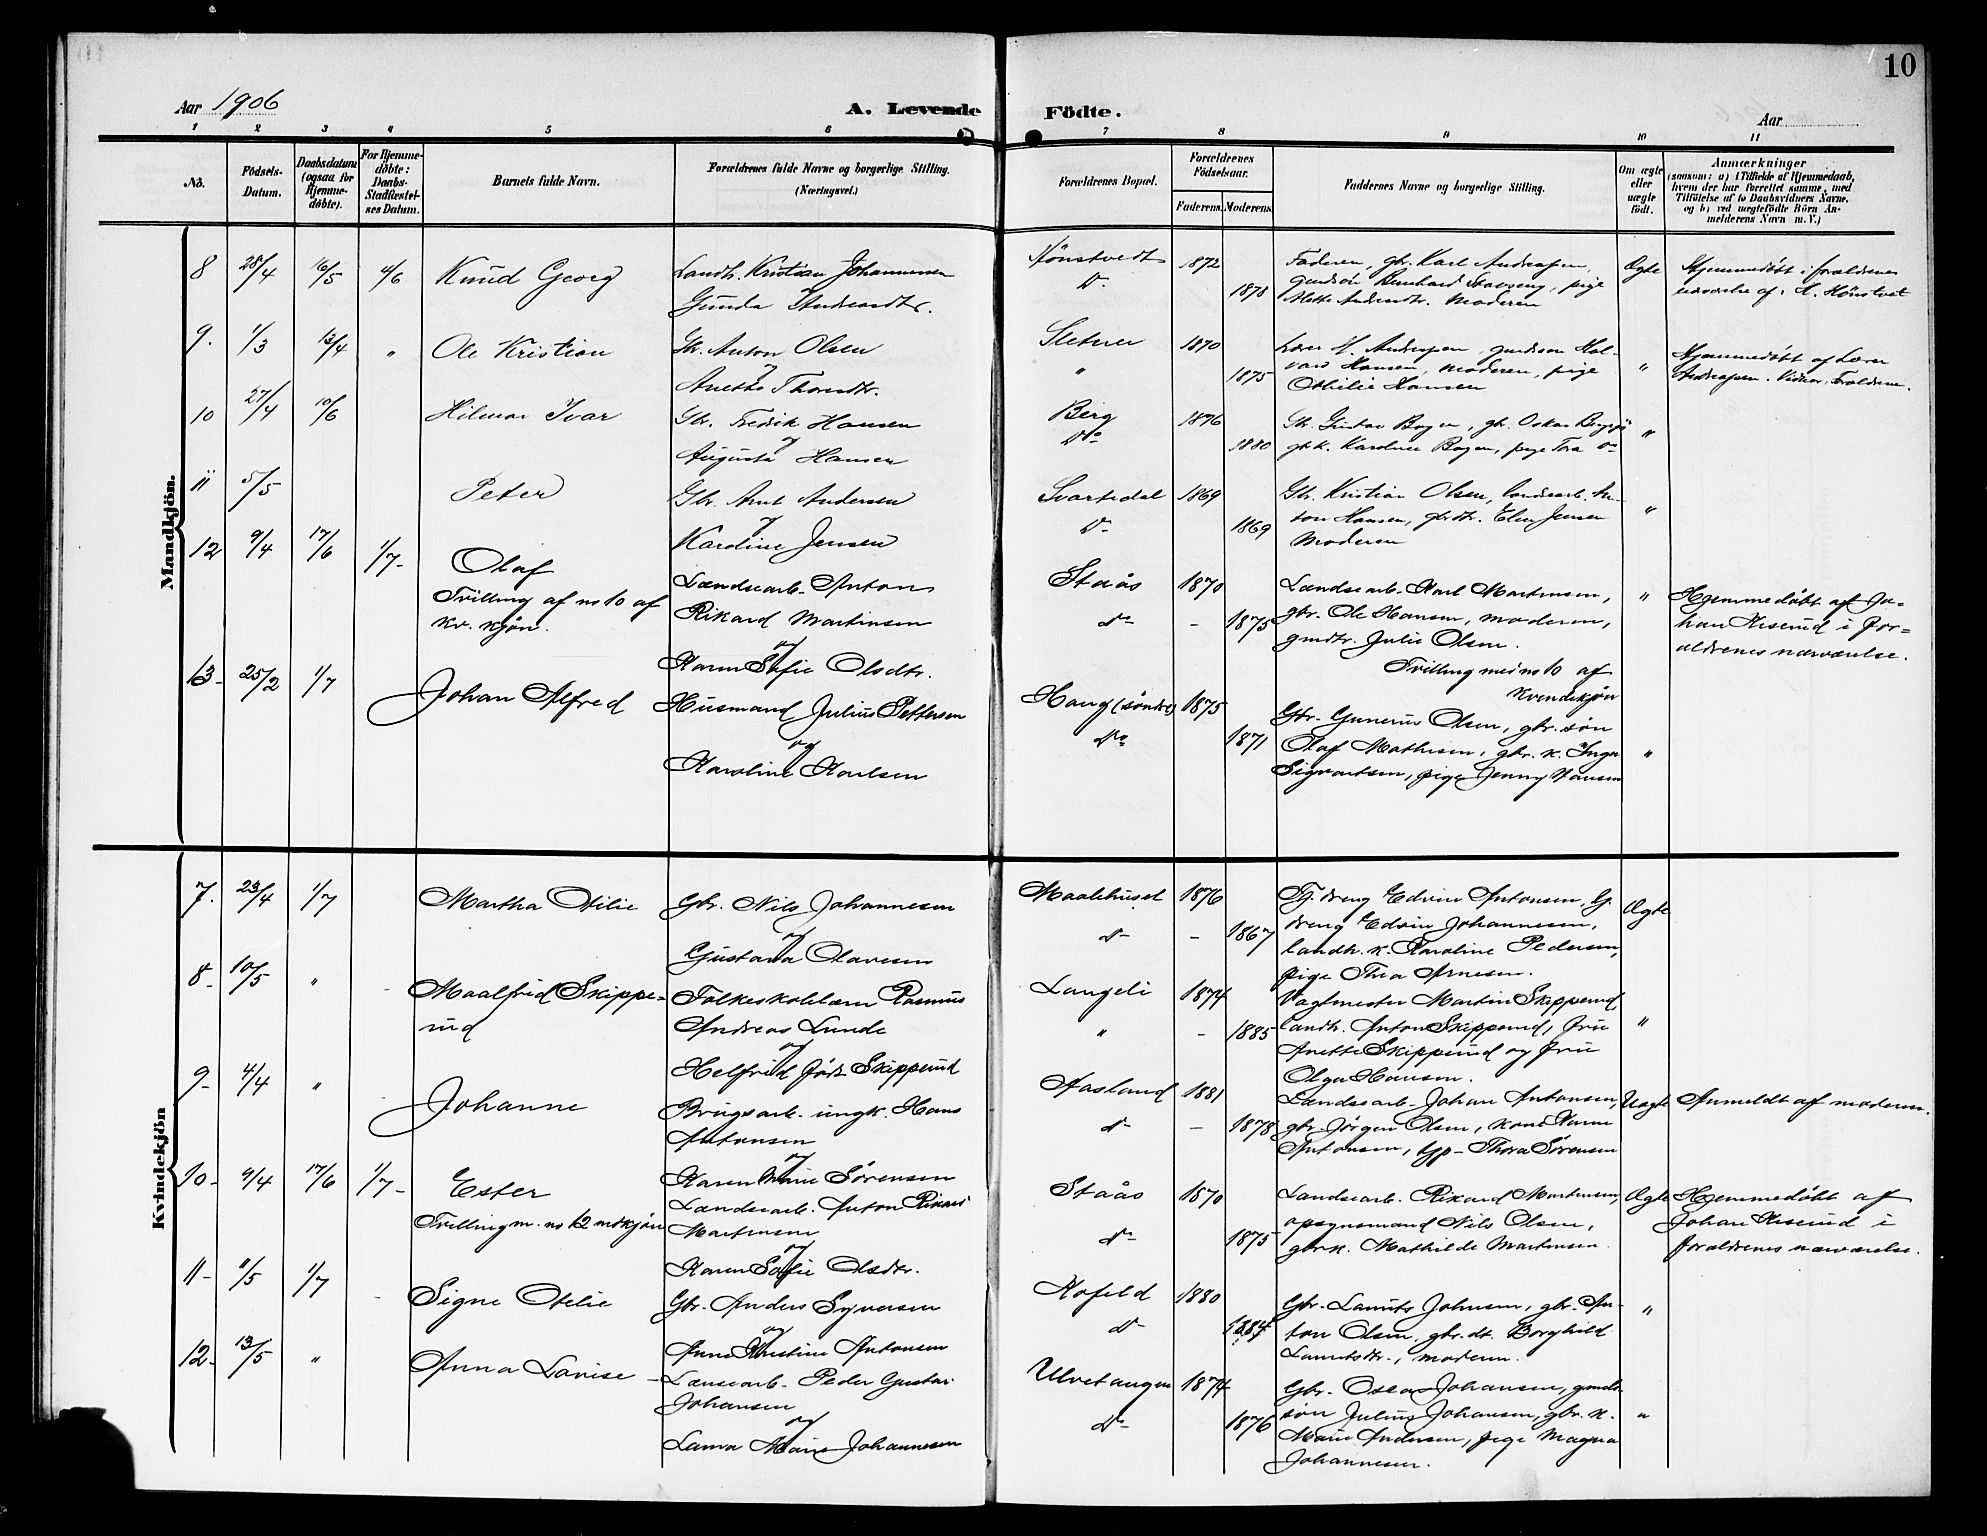 10
Aar 1906
A. Levende Födte.
Aar
1 2 3 4 5 6 7 8 9 10 11
No.
Födsels-Datum.
Daabsdatum (ogsaa for Hjemme-döbte).
For Hjemme-döbte: Daabs-Stadfæstel-ses Datum.
Barnets fulde Navn.
Forældrenes fulde Navne og borgerlige Stilling. (Næringsvei.)
Forældrenes Bopæl.
Forældrenes Födselsaar.
Faderens. Moderens.
Faddernes Navne og borgerlige Stilling.
Om ægte eller uægte födt.
Anmærkninger
(saasom: a) i Tilfælde af Hjemmedaab,
hvem der har forrettet samme, med
Tilföielse af to Daabsvidners Navne.
og b) ved uægtefödte Börn An-
melderens Navn m. V.)
Mandkjön.
8 28/4 16/5 4/6 Knud Georg
Landh. Kristian Johannessen
Gunda Andreasdtr.
Hönstvedt 1872
Do 1878
Faderen, gbr. Karl Andersen,
gaardsön Bernhard, pige
Mette Andersdtr. Moderen
Ægte
Hjemmedöbt i forældrenes
nærværelse af H. Hönstvet
9. 1/3 13/4 " Ole Kristian
Gbr. Anton Olsen
og
Anette Thorsdtr.
Sletner 1870
" 1875
Lærer H. Andersen, gaardsön Hal-
vard Hansen, moderen, pige
Othilie Hansen
"
Hjemmedöbt af Lærer
Andersen. Vidner: Forældrene.
10 27/4 10/6 Hilmar Ivar
Gbr. Fredrik Hansen
og
Augusta Hansen
Berg 1876
Do 1880
Gbr. Gustav Bogen, gbr. Oskar
gbk. Karoline Bogen, pige Tora do
"
11 5/5 Peter
Gbr. Anut Andersen
og
Karoline Jensen
Svartedal 1869
Do 1869
Gbr. Kristian Olsen, landsarb. An-
ton Hansen, gbrdtr. Elen Jensen
Moderen
"
12 9/4 17/6 1/7- Olaf
Tvilling af no 10 af
kv. kjön.
Landsearb. Anton
Rikard Martinsen
og
Karen Sofie Olsdtr.
Staås 1870
do - 1875
Landsearb. Karl Martinsen,
gbr. Ole Hansen, moderen,
gmdtr. Julie Olsen.
Tvilling med no 10 af
kvindekjön
"
Hjemmedöbt af Jo-
han Riserud i for-
ældrenes nærværelse.
13- 25/2 1/7 Johan Alfred
Husmand Julius Pettersen
og
Karoline Karlsen
Haug (söndre) 1875
do 1871
Gbr. Gunerius Olsen, gbr. sön
Olaf Mathisen, gbr. k. Inga
Sigvartsen, pige Jenny Hansen
"
Kvindekjön
7. 23/4 1/7 Martha Otilie
Gbr. Nils Johannesen
og
Gustava Olavesen
Maalehuset 1876
do - 1867
Tj. dreng Edvin Antonsen, G.
dreng Edvin Johannesen,
landh. k. Karoline Pedersen,
pige Thea Arnesen.
Ægte
8- 10/5 " Maalfrid Skippe-
rud
Folkeskolelærer Rasmus
Andreas Lunde
og
Helfrid föd Skipperud
Langeli 1874
" - 1885
Vagtmester Martin Skipperud,
landh. Anton Skipperud, fru
Anette Skipperud og fru
Olga Hansen.
"
9- 4/4 " Johanne
Brugsarb. ungk. Hans
Antonsen
og
Karen Marie Sörensen
Aasland 1881
do - 1878
Landsearb. Johan Antonsen,
gbr. Jörgen Olsen, kone Karen
Antonsen, tjp- Thora Sörensen
Uægte
Anmeldt af moderen.
10- 9/4 17/6 1/7- Ester
Tvilling m. no 12 mdkjön
Landsearb. Anton Rikard
Martinsen
og
Karen Sofie Olsdtr.
Staås 1870
do 1875
Landsearb. Rikard Martinsen,
opsynsmand Nils Olsen,
gbrk. Mathilde Martinsen.
Ægte
Hjemmedöbt af
Johan Riserud i
forældrenes nærværelse.
11- 11/5 1/7 Signe Otelie
Gbr. Anders Syversen
og
Anne Kristine Antonsen
Kofeld 1880
do 1884
Gbr. Laurits Johnsen, gbr. An-
ton Olsen, gbr. dt. Borghild
Lauritsdtr., moderen.
"
12- 13/5 " Anna Lovise
Lansearb. Peder Gustav
Johansen
og
Laura Marie Johannesen
Ulvetangen 1874
do 1876
Gbr. Oskar Johansen, gaard-
sön Julius Johansen, gbr. k.
Marie Andersen, pige Magna
Johannesen.
"